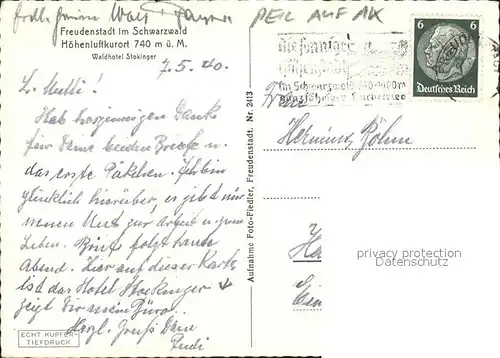 PEIL AUF AK
Freudenstadt im Schwarzwald
Höhenluftkurort 740 m ü. M.
Waldhotel Stokinger
7.5.40.
6 6
Deutsches Reich
im Schwarzwald 740-1000m
L. Mutti!
Hab
für Deine beiden Briefe u.
das erste Päckchen. Ich bin
glücklich hierüber, es gibt mir
neuen Mut zur Arbeit u. zum
Leben. Brief folgt heute
Abend. Hier auf dieser Karte
ist das Hotel Stockinger
zeigt Dir mein Büro.
Herzl. Gruß Dein
Rudi
ECHT KUPFER-
TIEFDRUCK
Aufnahme Foto-Fiedler, Freudenstadt. Nr. 2413
Frau
Hermine Böhm
privacy protection
Datenschutz